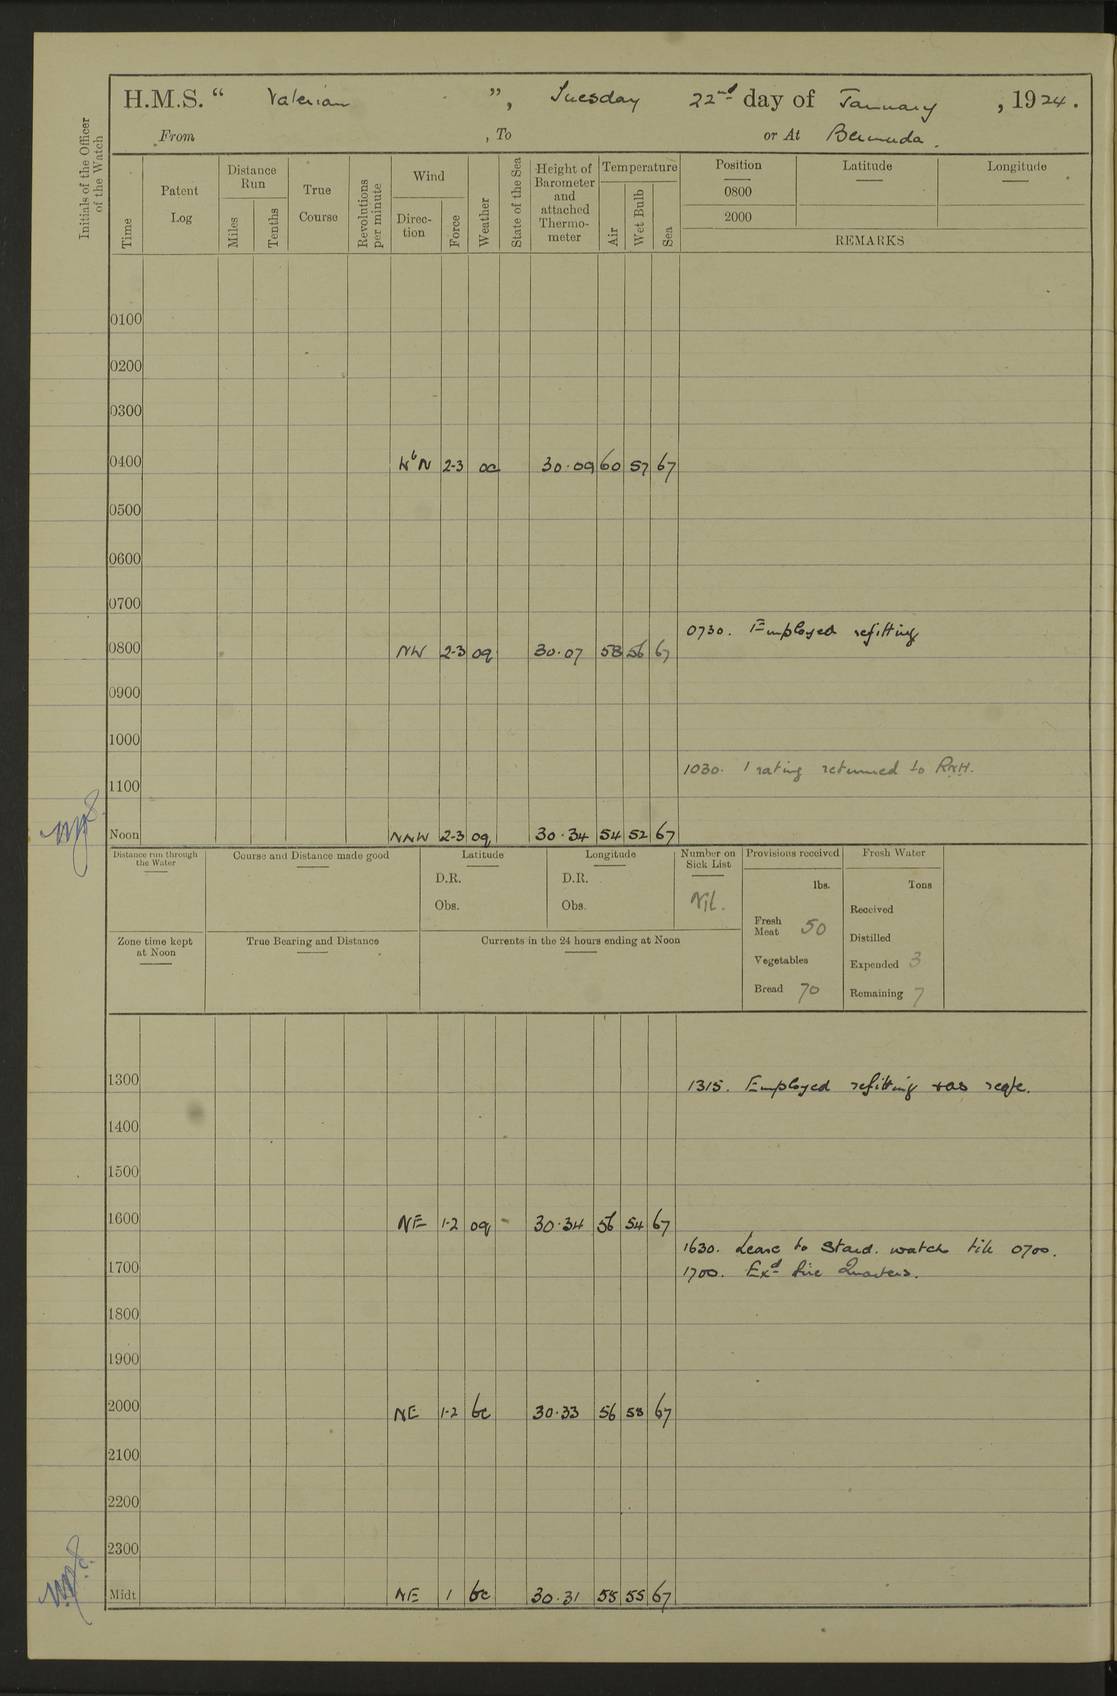 H.M.S. “ Valerian ”, Tuesday 22nd day of January, 1924.
From , To or At Bermuda.
Initials of the Officer of the Watch
Time
Patent Log
Distance Run
Miles
Tenths
True Course
Revolutions per minute
Wind
Direc-tion
Force
Weather
State of the Sea
Height of Barometer and attached Thermo-meter
Temperature
Air
Wet Bulb
Sea
Position
Latitude
Longitude
0800
2000
REMARKS
0100
0200
0300
0400 WbN 2-3 oc 30.09 60 57 67
0500
0600
0700
0730. Employed refitting
0800 NW 2-3 oq 30.07 58 56 67
0900
1000
1030. 1 rating returned to RNH.
1100
Noon NNW 2-3 oq 30.34 54 52 67
Distance run through the Water
Course and Distance made good
Latitude
D.R.
Obs.
Longitude
D.R.
Obs.
Number on Sick List
Nil.
Provisions received
lbs.
Fresh Meat 50
Vegetables
Bread 70
Fresh Water
Tons
Received
Distilled
Expended 3
Remaining 7
Zone time kept at Noon
True Bearing and Distance
Currents in the 24 hours ending at Noon
1300
1315. Employed refitting & as reqte.
1400
1500
1600 NE 1-2 oq 30.34 56 54 67
1630. Leave to Starbd. watch till 0700.
1700. Exd fire Quarters.
1700
1800
1900
2000 NE 1-2 bc 30.33 56 67
2100
2200
2300
Midt NE 1 bc 30.31 55 67